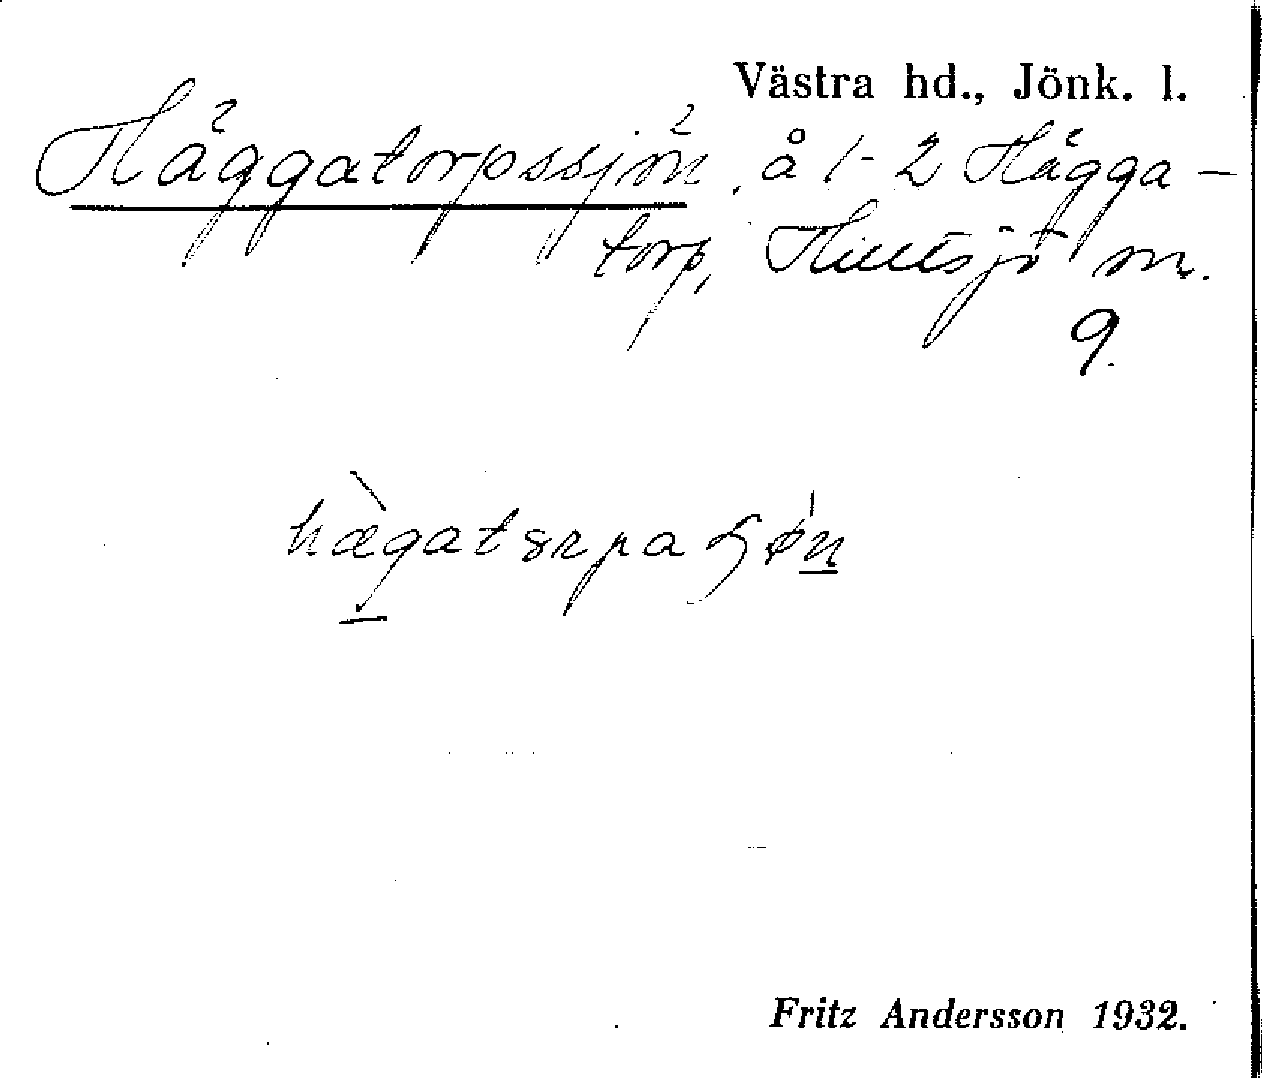 Västra hd., Jönk. l.
Häggatorpssjön, å 1-2 Hägga-
torp, Hultsjö m.
9.
hægatorpa sjøn
Fritz Andersson 1932.